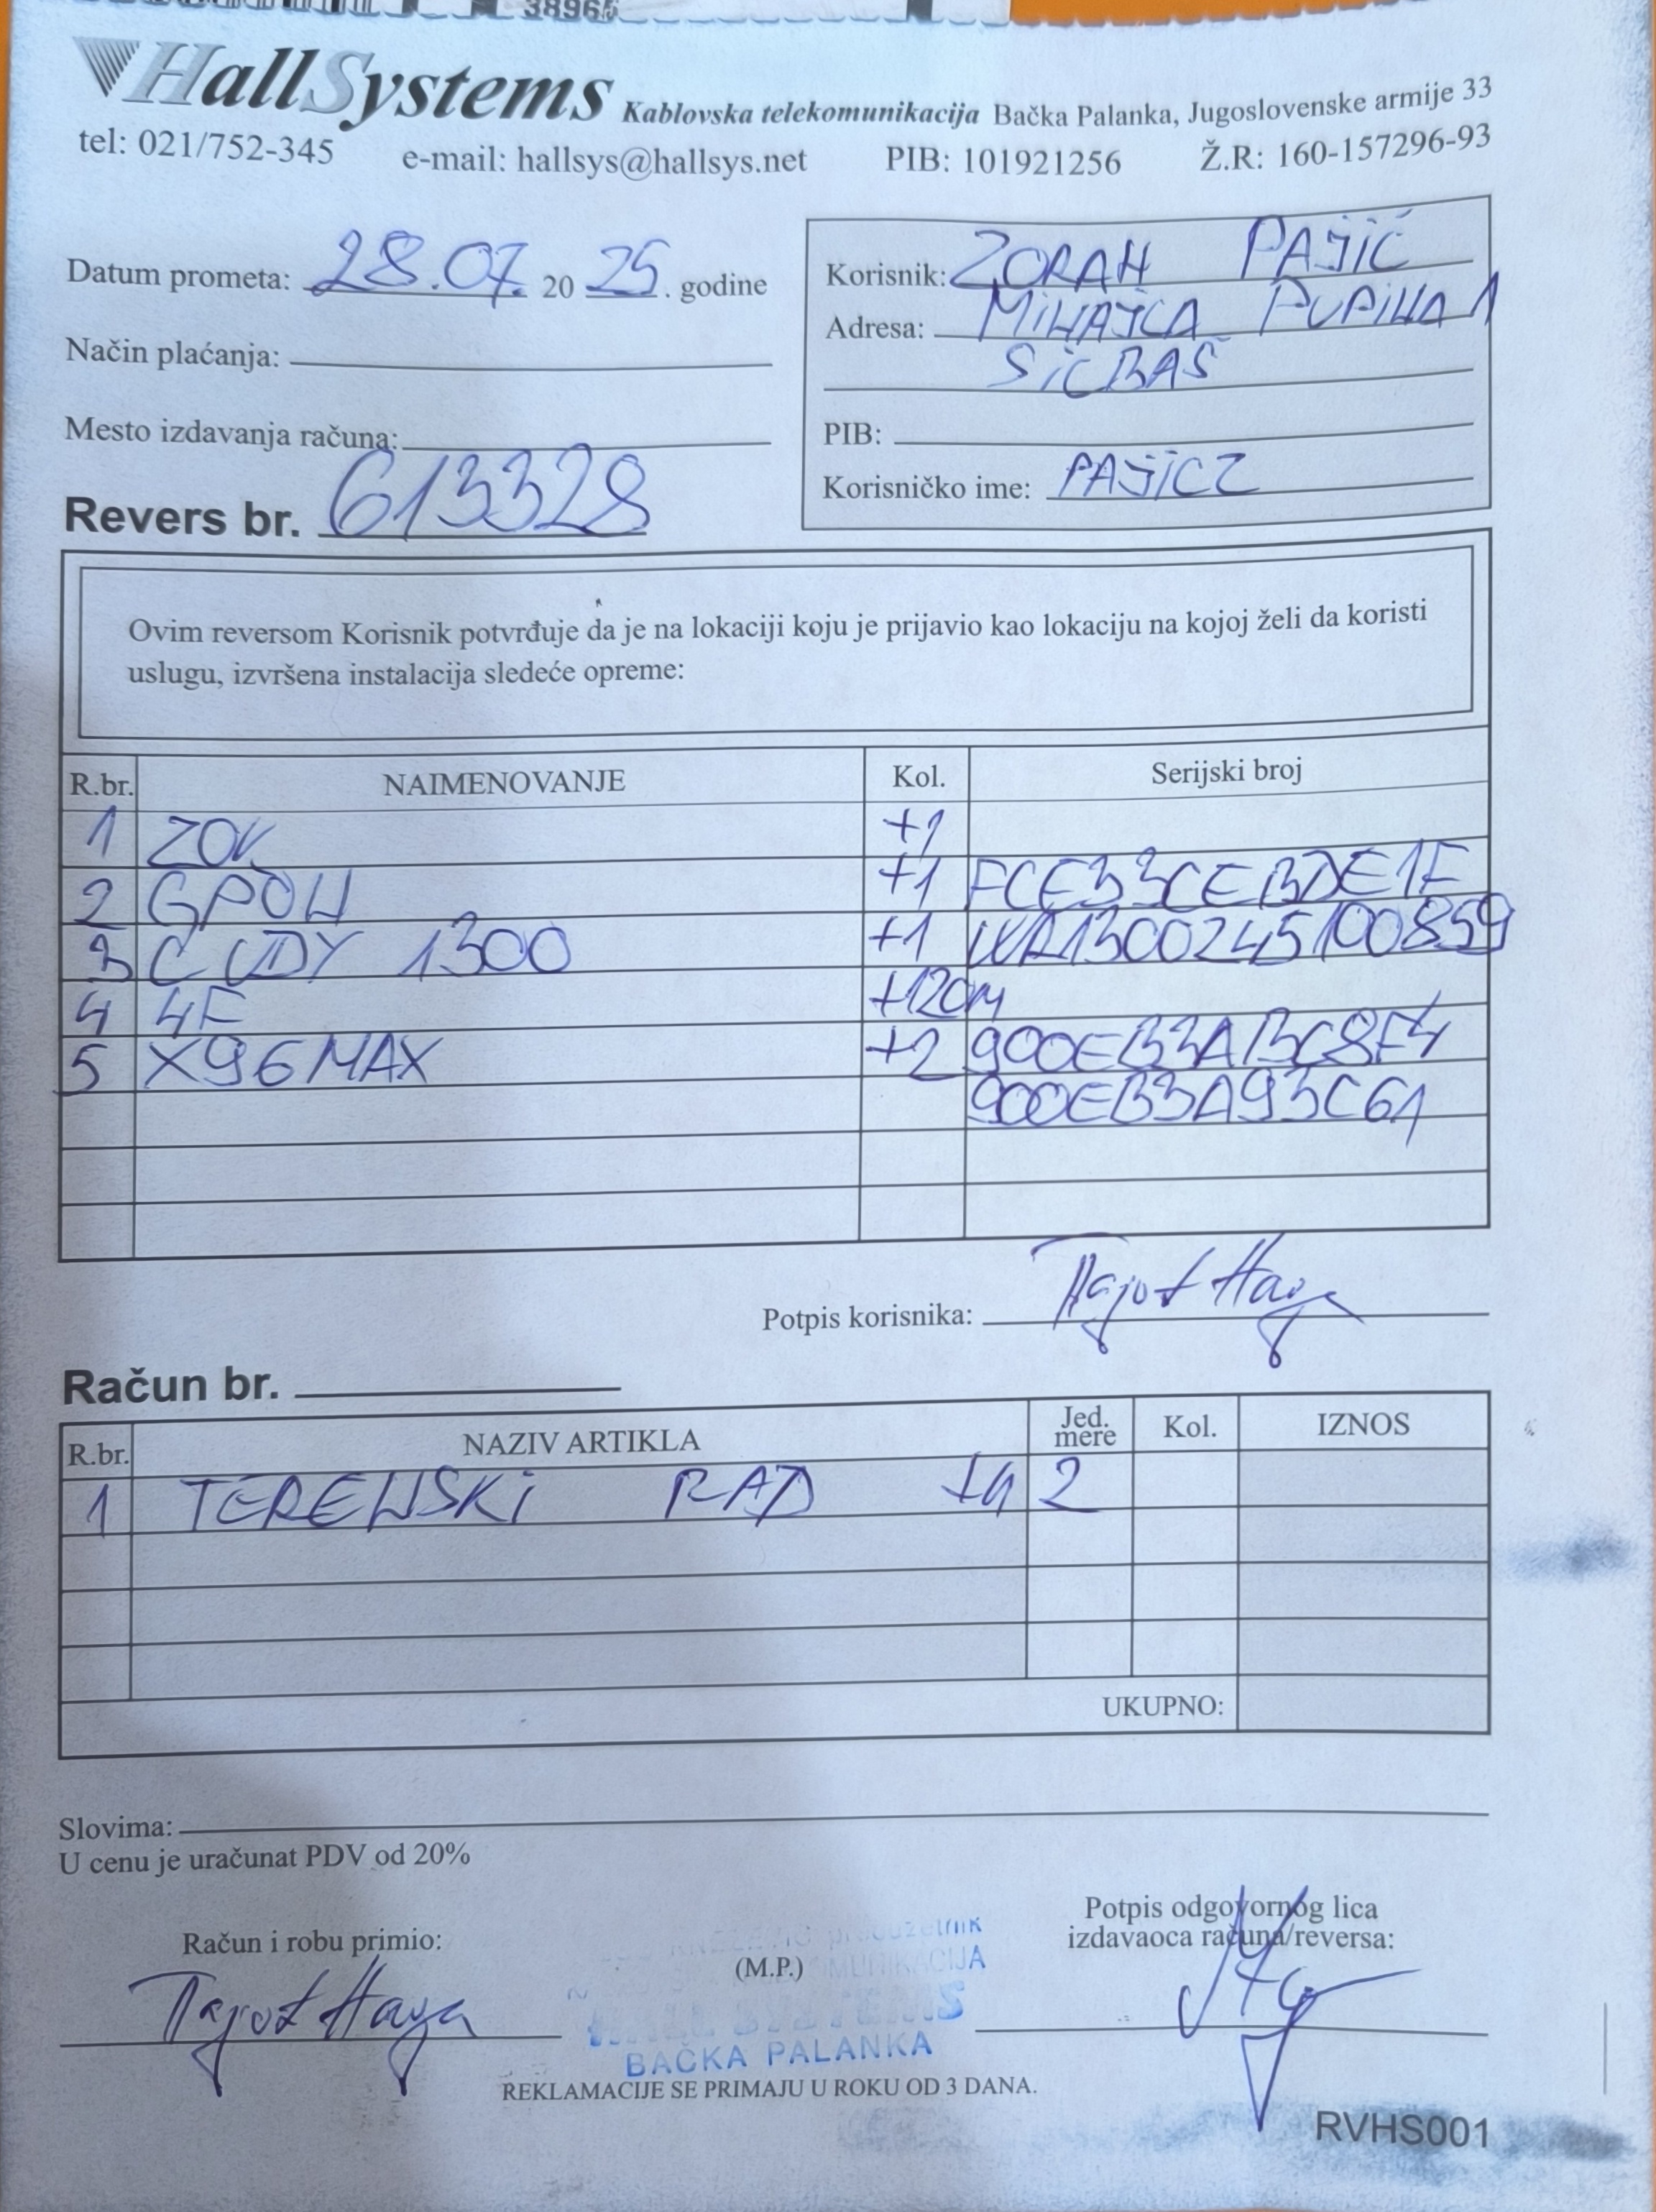 38965
HallSystems Kablovska telekomunikacija Bačka Palanka, Jugoslovenske armije 33
tel: 021/752-345 e-mail: hallsys@hallsys.net PIB: 101921256 Ž.R: 160-157296-93
Datum prometa: 28.07. 20 25. godine
Način plaćanja:
Mesto izdavanja računa:
Revers br. 613328
Korisnik: ZORAN PAJIĆ
Adresa: MIHAJLA PUPINA 1
SILBAŠ
PIB:
Korisničko ime: PAJICZ
Ovim reversom Korisnik potvrđuje da je na lokaciji koju je prijavio kao lokaciju na kojoj želi da koristi
uslugu, izvršena instalacija sledeće opreme:
R.br. NAIMENOVANJE Kol. Serijski broj
1 ZOK +1
2 GPON +1 FCE33CEBDE1F
3 CUDY 1300 +1 WR1300245100859
4 4F +120m
5 X96MAX +2 900EB3ABC8F4
900EB3A93C61
Potpis korisnika:
Račun br.
R.br. NAZIV ARTIKLA Jed. mere Kol. IZNOS
1 TERENSKI RAD 2
UKUPNO:
Slovima:
U cenu je uračunat PDV od 20%
Račun i robu primio:
(M.P.)
Potpis odgovornog lica
izdavaoca računa/reversa:
HALL SYSTEMS
BAČKA PALANKA
REKLAMACIJE SE PRIMAJU U ROKU OD 3 DANA.
RVHS001